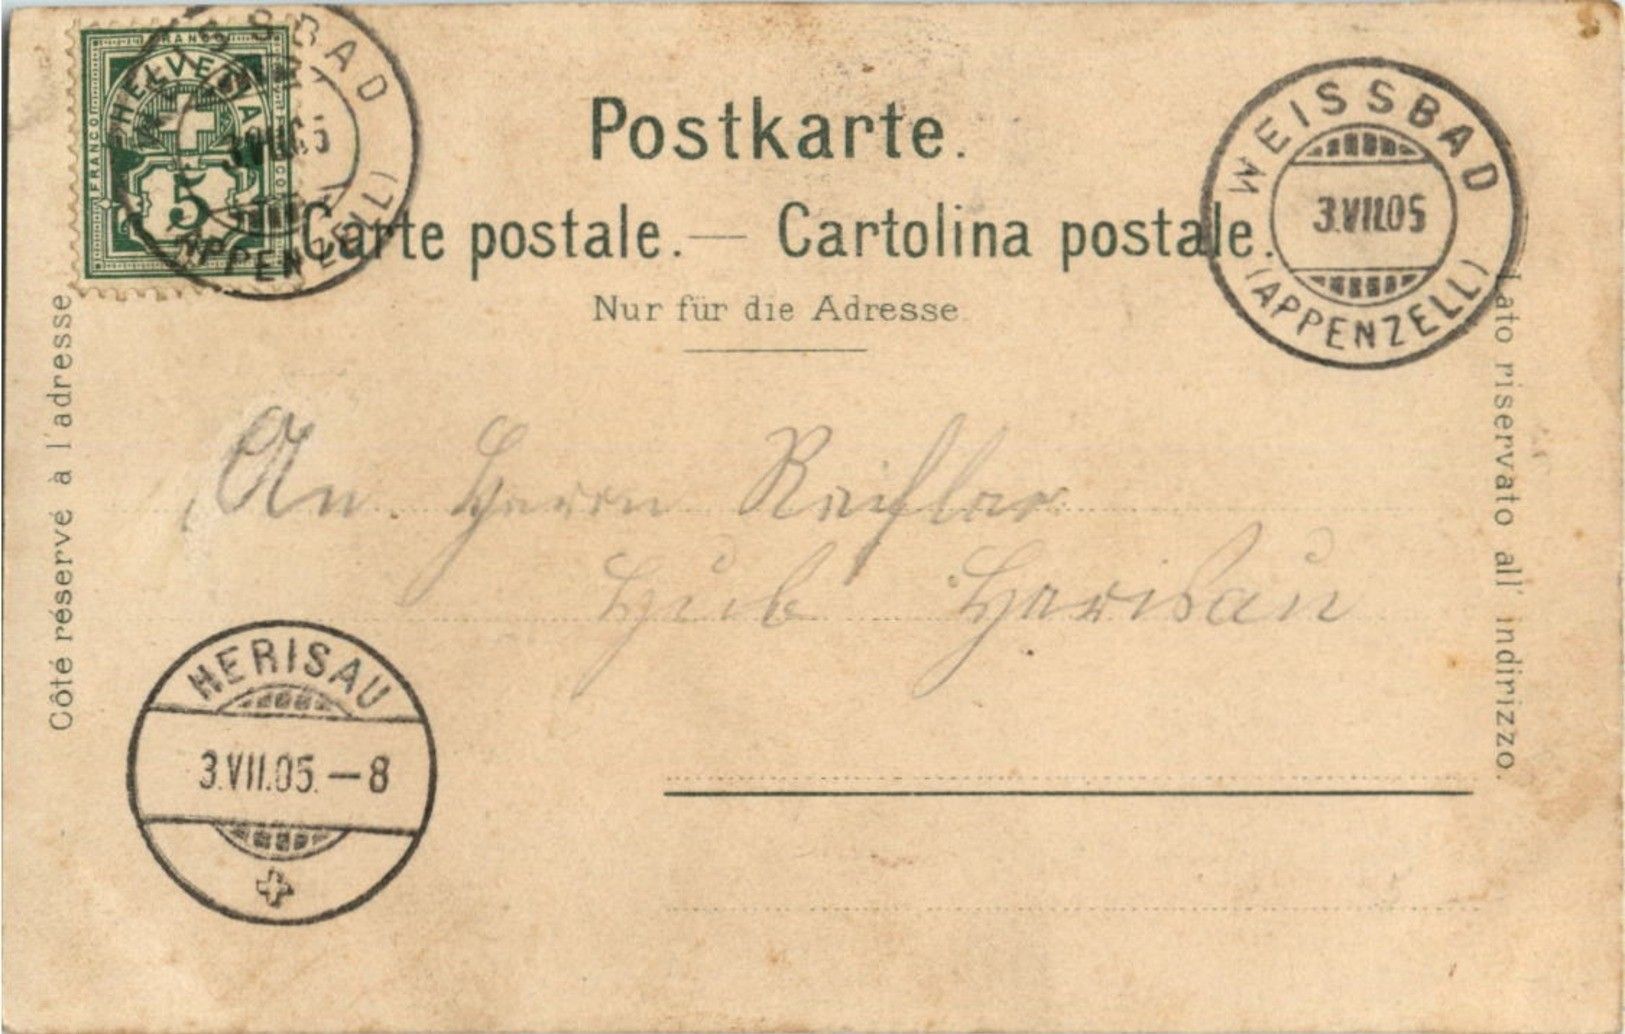 FRANCO
HELVETIA
FRANCO
FRANCO
5
WEISSBAD
(APPENZELL)
Postkarte.
Carte postale. — Cartolina postale.
Nur für die Adresse
WEISSBAD
3.VII.05
(APPENZELL)
Côté réservé à l'adresse
Lato riservato all' indirizzo.
An Herrn
Hub Herisau
HERISAU
3.VII.05.—8